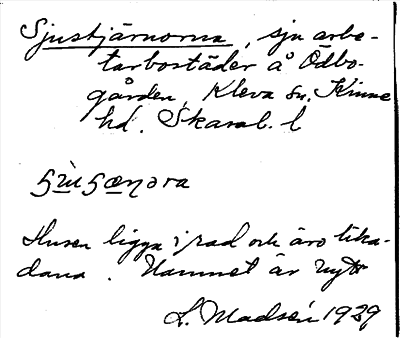 Sjustjärnorna, sju arbe-
tarbostäder å Odbo-
gården, Kleva sn, Kinne
hd. Skarab. l
Husen ligga i rad och äro lika-
dana. Namnet är nytt
L. Madsén 1929